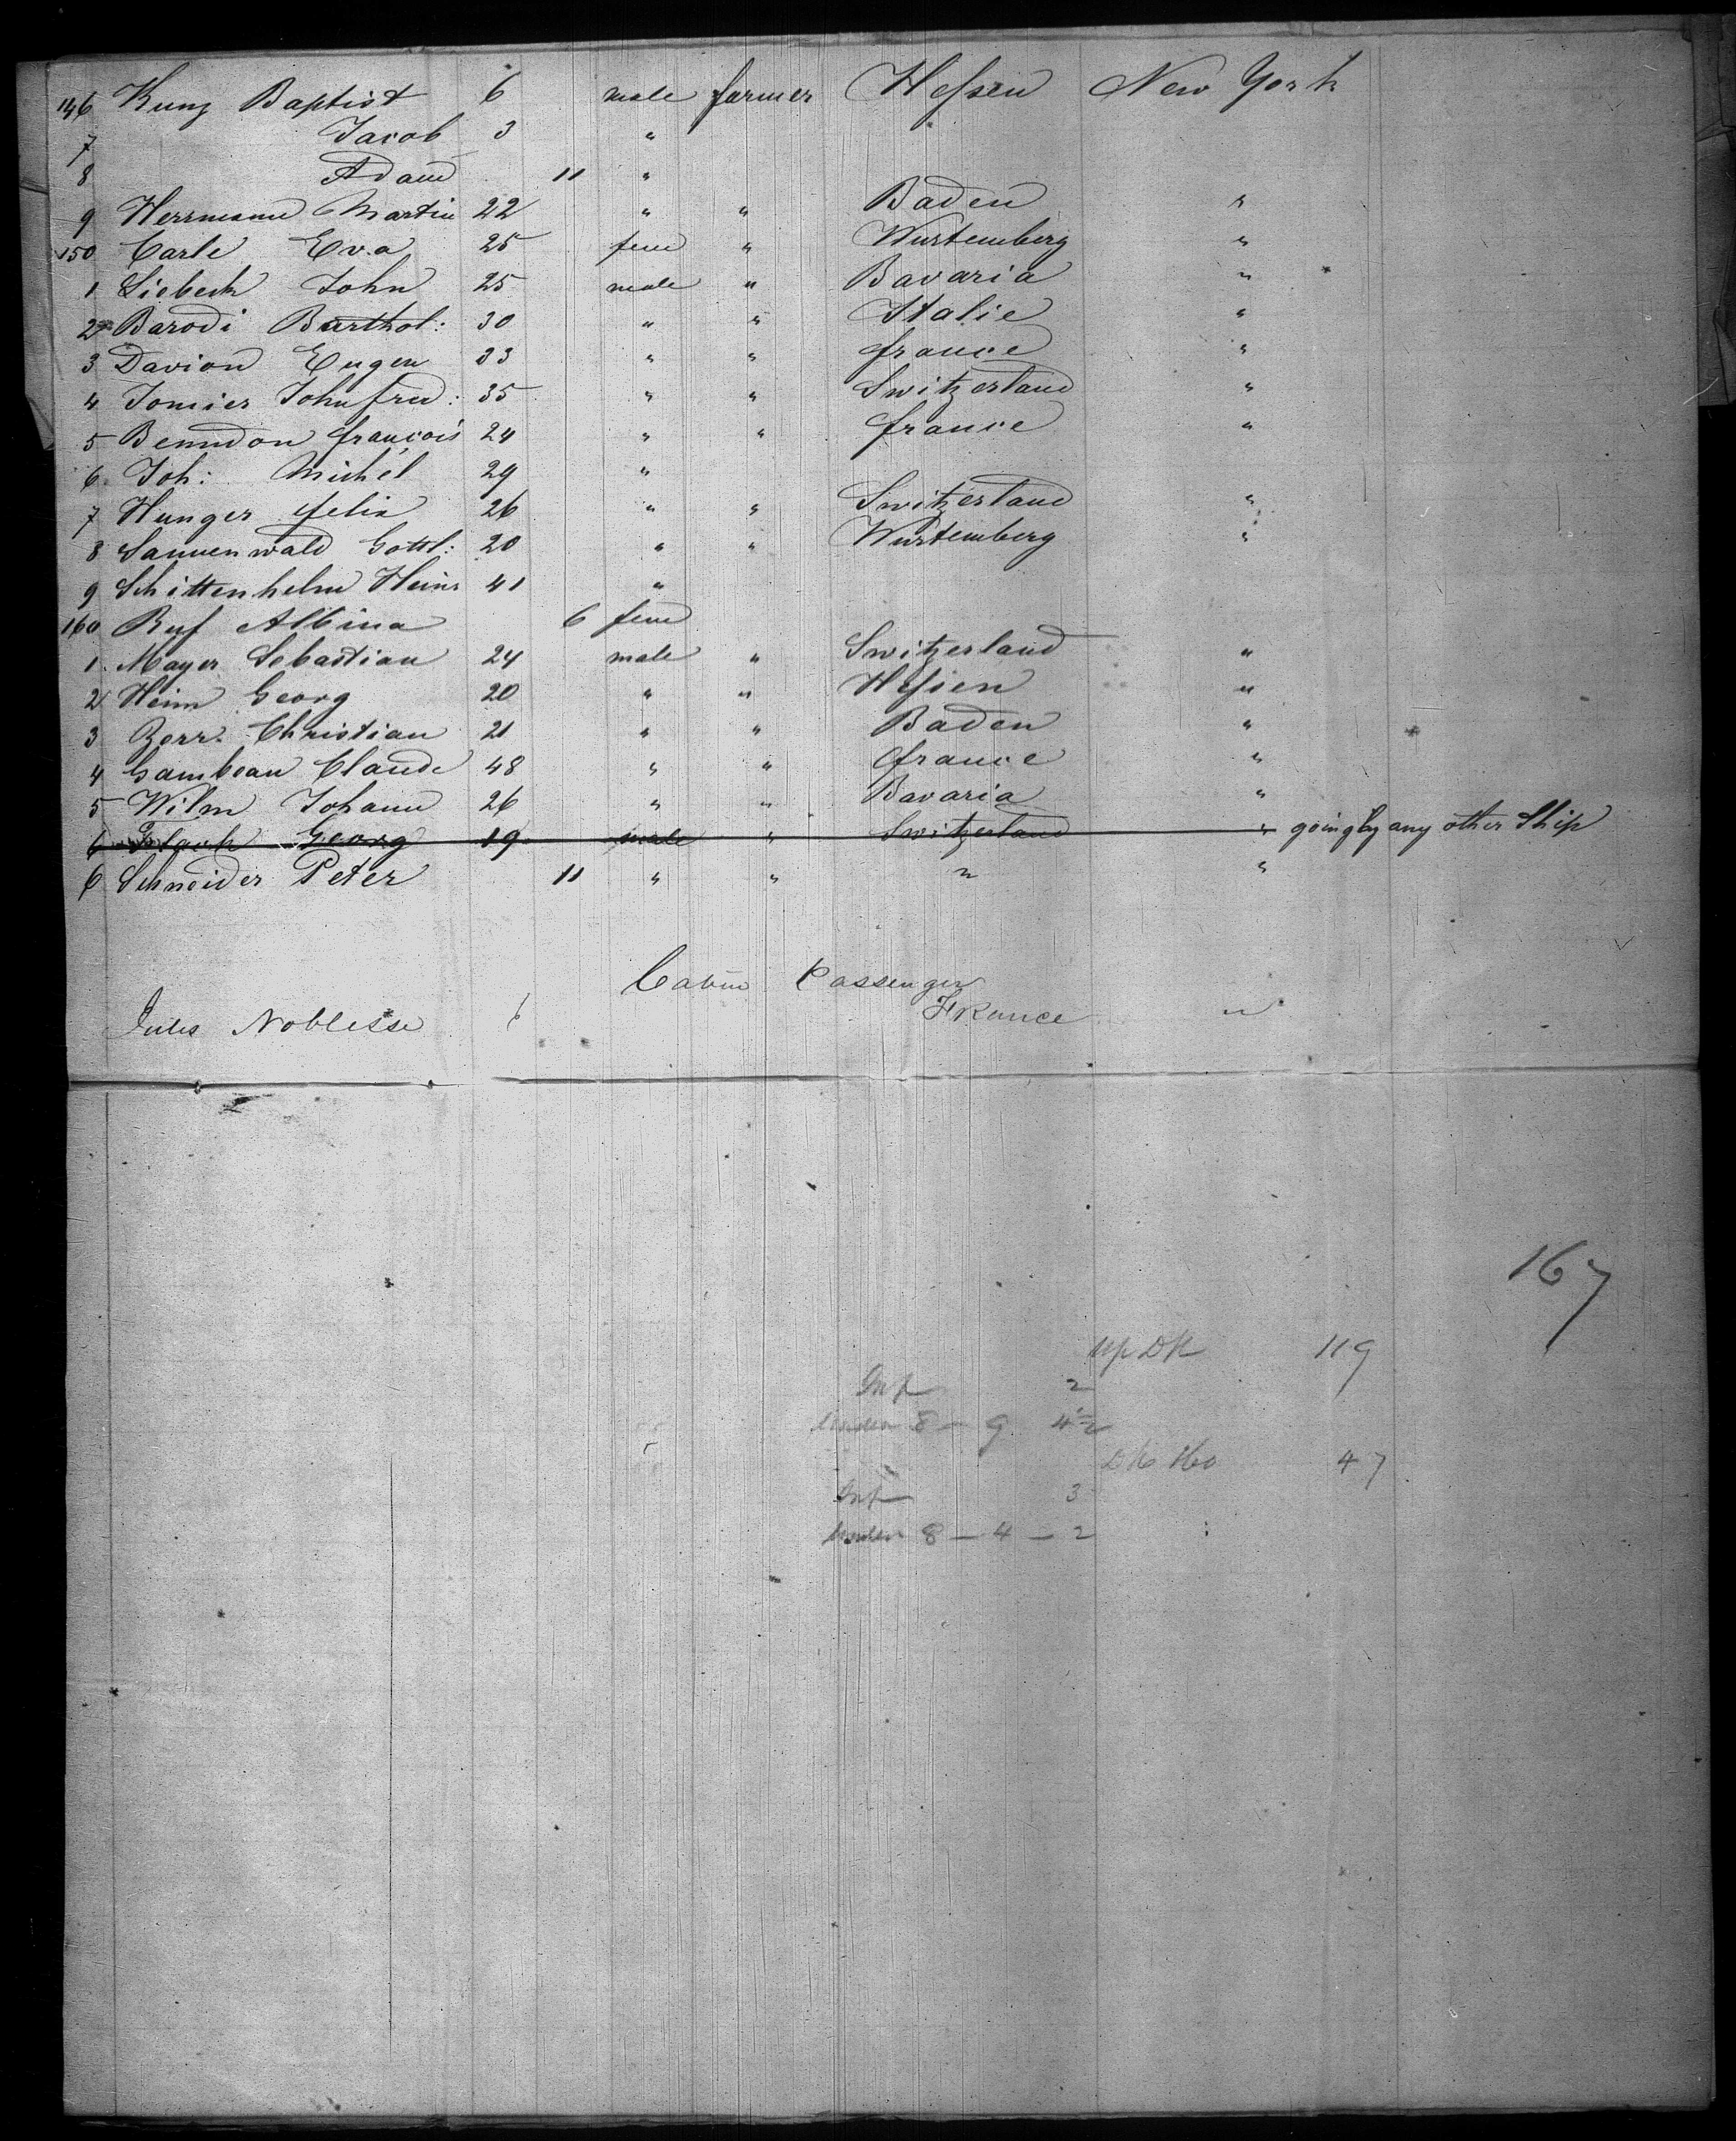 146 Kunz Baptist 6 male farmer Hessen New York
7 Jacob 3 "
8 Adam 11 "
9 Herrmann Martin 22 " " Baden "
150 Carle Eva 25 fem " Wurtemberg "
1 Siebeck John 25 male " Bavaria "
2 Barodi Barthol: 30 " " Italie "
3 Davion Eugen 33 " " france "
4 Jomier John fred: 35 " " Switzerland "
5 Benndon françois 24 " " france "
6 Joh: Michel 29 "
7 Hunger felix 26 " " Switzerland "
8 Sannenwald Gottl: 20 " " Wurtemberg "
9 Schittenhelm Heinr 41 "
160 Ruf Albina 6 fem
1 Mayer Sebastian 24 male " Switzerland "
2 Heim Georg 20 " " Hessen "
3 Zorr Christian 21 " " Baden "
4 Gambeau Claude 48 " " france "
5 Wilm Johann 26 " " Bavaria "
6 Georg 19 male " Switzerland " going by any other Ship
6 Schneider Peter 11 " " " "
Cabin Passenger
Jules Noblesse France "
167
Up DK 119
Inf 2
Under 8 - 9 4½
DK Ho 47
Inf 3
Under 8 - 4 - 2